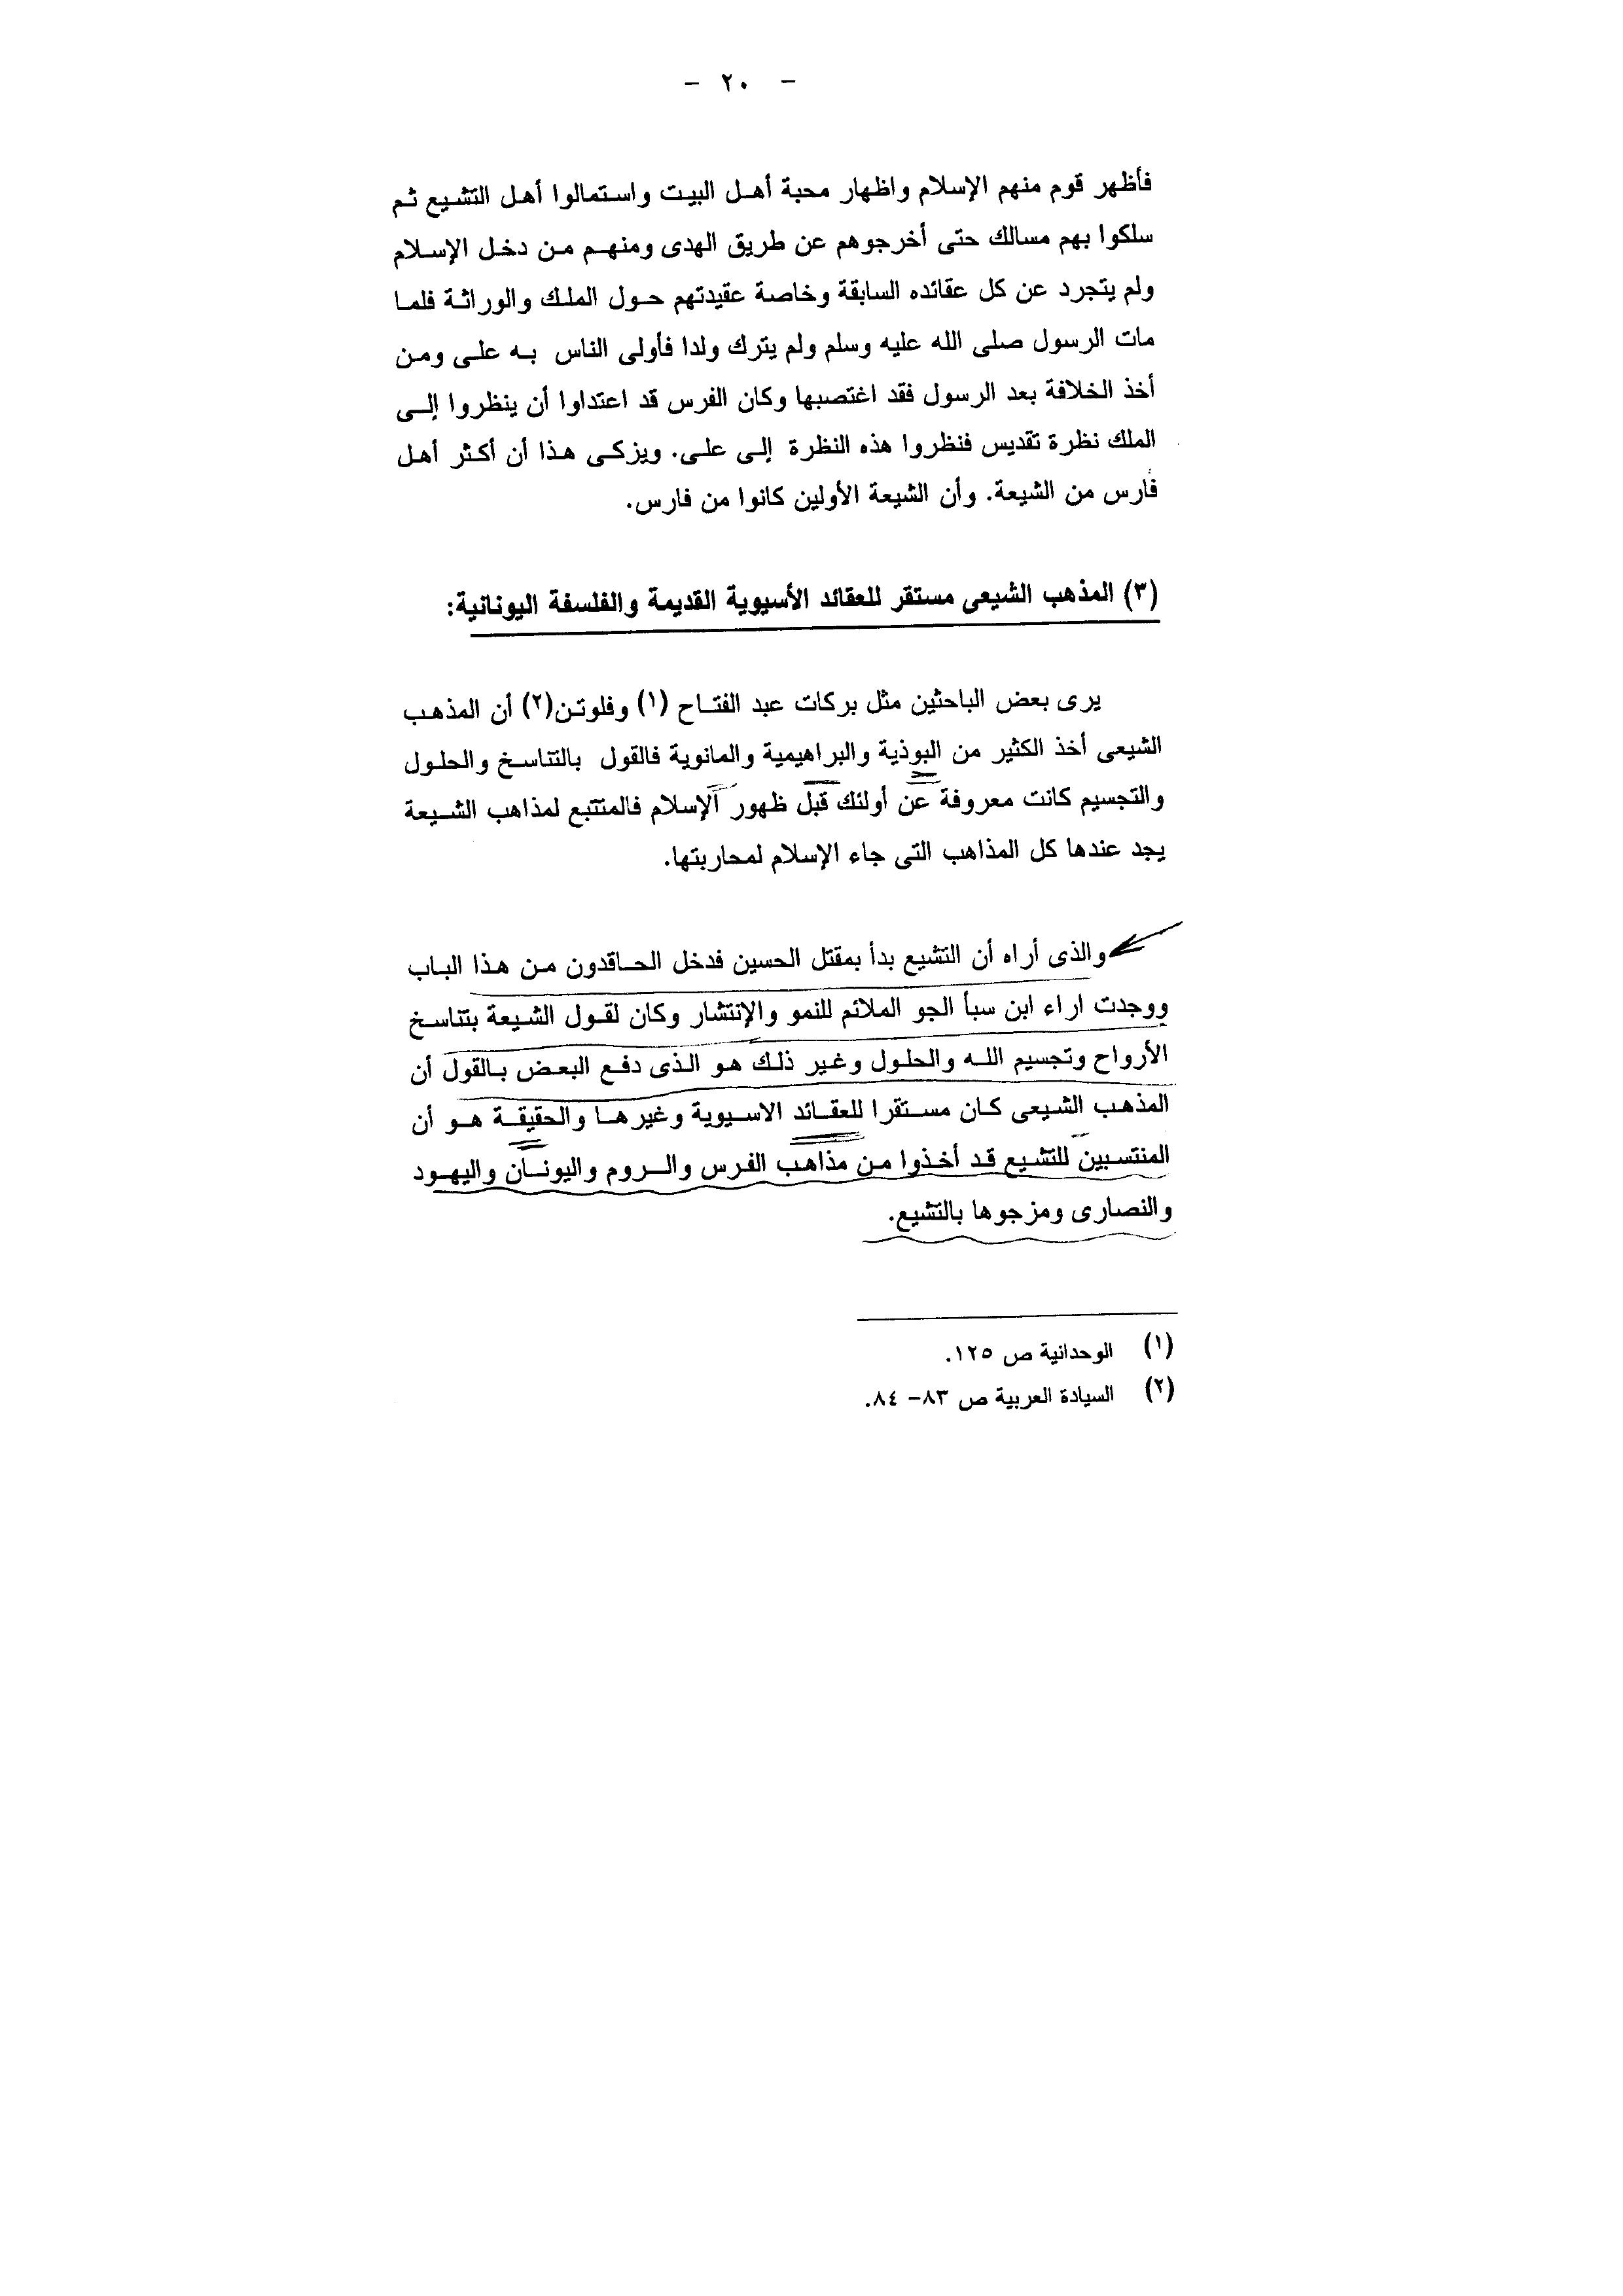 - ٢٠ -
فأظهر قوم منهم الإسلام واظهار محبة أهل البيت واستمالوا أهل التشيع ثم
سلكوا بهم مسالك حتى أخرجوهم عن طريق الهدى ومنهم من دخل الإسلام
ولم يتجرد عن كل عقائده السابقة وخاصة عقيدتهم حول الملك والوراثة فلما
مات الرسول صلى الله عليه وسلم ولم يترك ولدا فأولى الناس به على ومن
أخذ الخلافة بعد الرسول فقد اغتصبها وكان الفرس قد اعتداوا أن ينظروا إلى
الملك نظرة تقديس فنظروا هذه النظرة إلى على. ويزكى هذا أن أكثر أهل
فارس من الشيعة. وأن الشيعة الأولين كانوا من فارس.
(٣) المذهب الشيعى مستقر للعقائد الأسيوية القديمة والفلسفة اليونانية:
يرى بعض الباحثين مثل بركات عبد الفتاح (١) وفلوتن(٢) أن المذهب
الشيعى أخذ الكثير من البوذية والبراهيمية والمانوية فالقول بالتناسخ والحلول
والتجسيم كانت معروفة عن أولئك قبل ظهور الإسلام فالمتتبع لمذاهب الشيعة
يجد عندها كل المذاهب التى جاء الإسلام لمحاربتها.
والذى أراه أن التشيع بدأ بمقتل الحسين فدخل الحاقدون من هذا الباب
ووجدت اراء ابن سبأ الجو الملائم للنمو والإنتشار وكان لقول الشيعة بتناسخ
الأرواح وتجسيم الله والحلول وغير ذلك هو الذى دفع البعض بالقول أن
المذهب الشيعى كان مستقرا للعقائد الاسيوية وغيرها والحقيقة هو أن
المنتسبين للتشيع قد أخذوا من مذاهب الفرس والروم واليونان واليهود
والنصارى ومزجوها بالتشيع.
(١) الوحدانية ص ١٢٥.
(٢) السيادة العربية ص ٨٣- ٨٤.